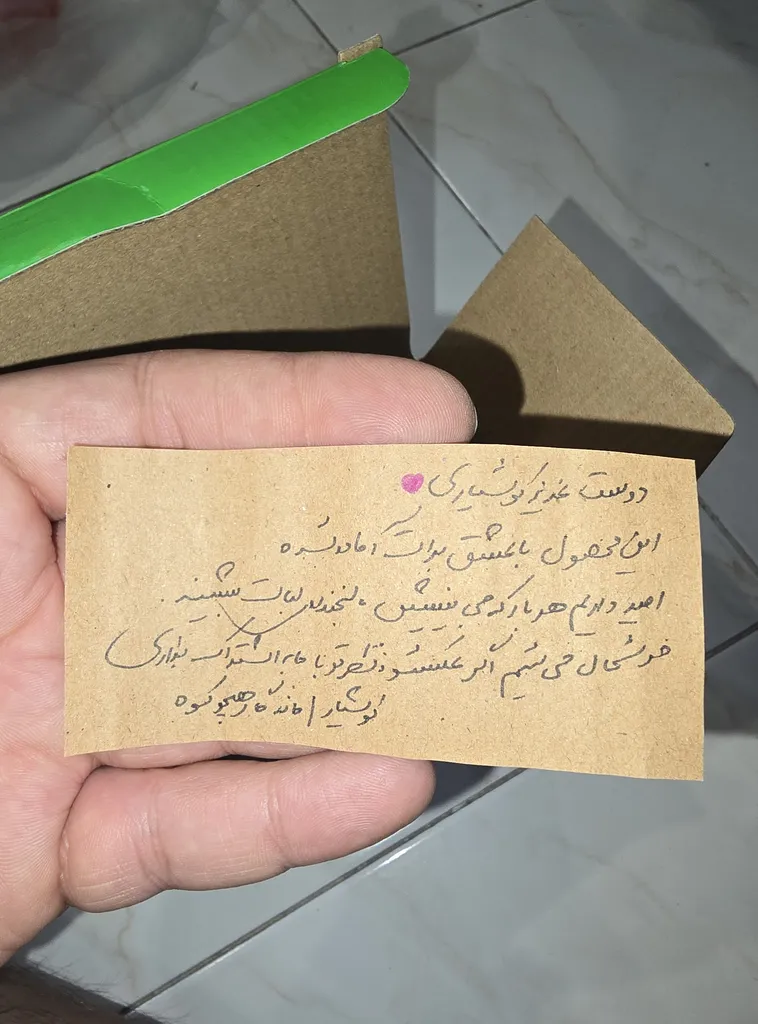 دوست عزیز کوشیاری
این محصول با عشق برات آماده شده
امید واریم هر بار که می بینیش، لبخند به لبات بشینه.
خوشحال می شیم اگر عکسشو و نظرتو با ما به اشتراک بذاری
کوشیار / ماندگار همچو کوه